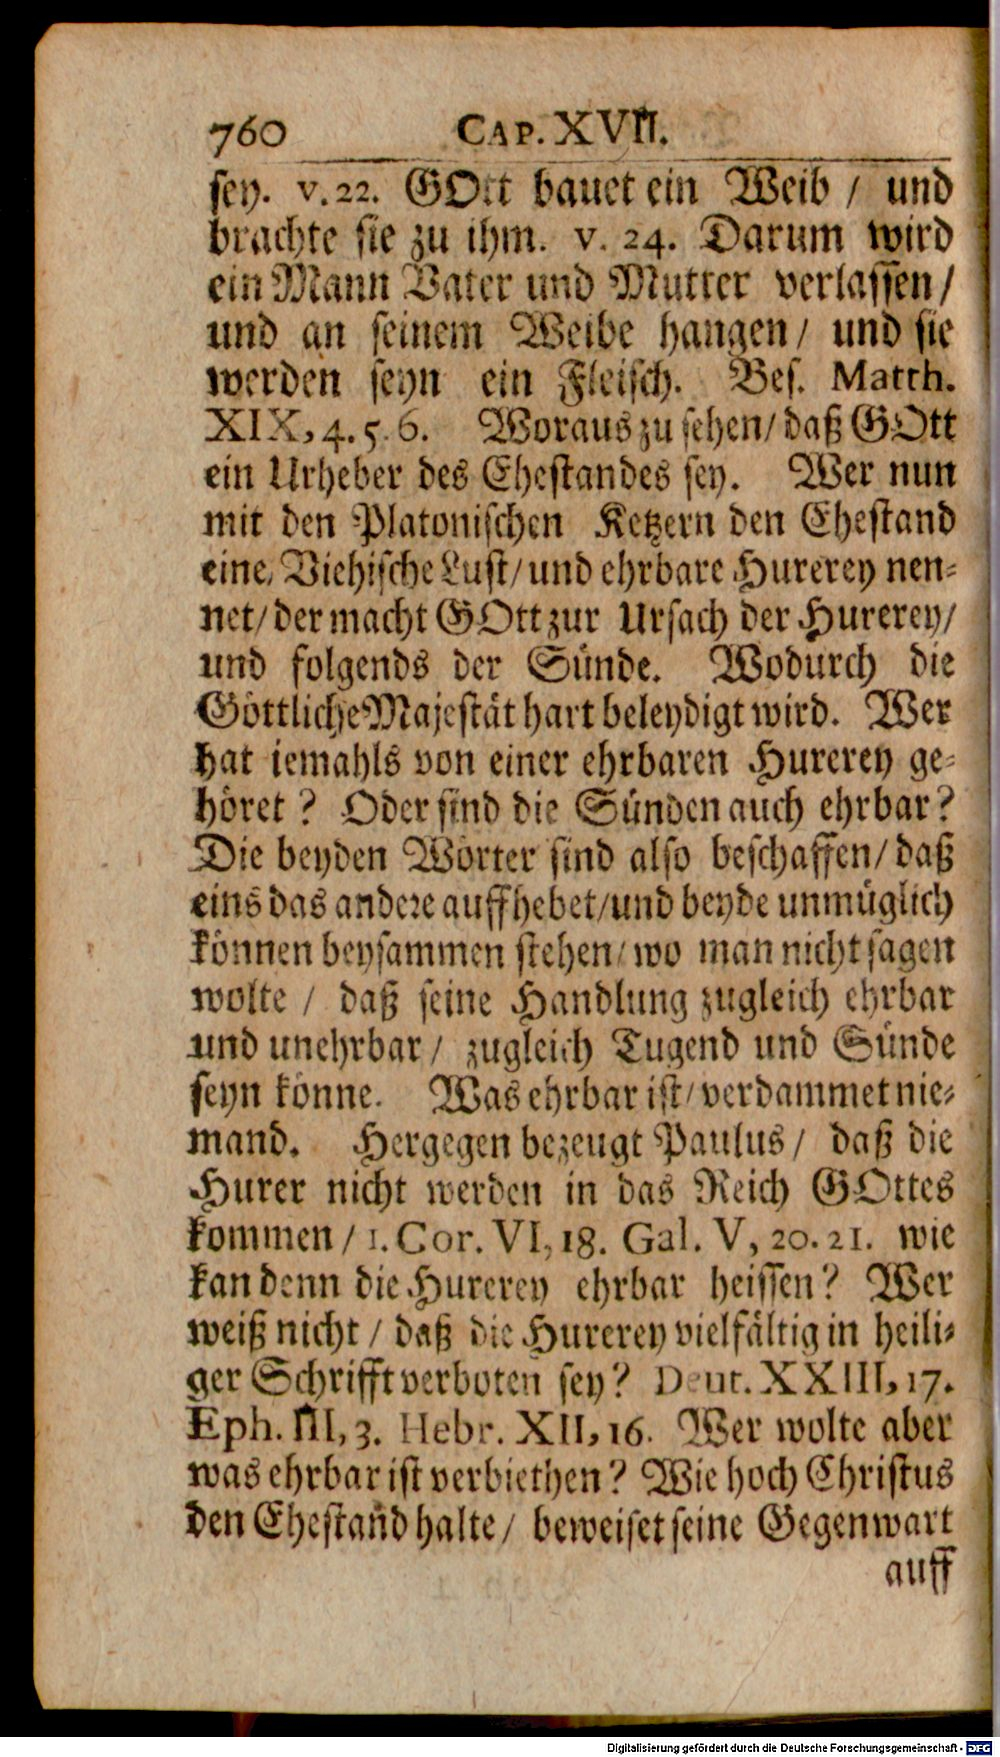 760 CAP. XVII.
sey. v. 22. GOtt bauet ein Weib / und
brachte sie zu ihm. v. 24. Darum wird
ein Mann Vater und Mutter verlassen /
und an seinem Weibe hangen / und sie
werden seyn ein Fleisch. Bes. Matth.
XIX, 4. 5. 6. Woraus zu sehen / daß GOtt
ein Urheber des Ehestandes sey. Wer nun
mit den Platonischen Ketzern den Ehestand
eine Viehische Lust / und ehrbare Hurerey nen-
net / der macht GOtt zur Ursach der Hurerey /
und folgends der Sünde. Wodurch die
Göttliche Majestät hart beleydigt wird. Wer
hat iemahls von einer ehrbaren Hurerey ge-
höret ? Oder sind die Sünden auch ehrbar ?
Die beyden Wörter sind also beschaffen / daß
eins das andere auffhebet / und beyde unmüglich
können beysammen stehen / wo man nicht sagen
wolte / daß seine Handlung zugleich ehrbar
und unehrbar / zugleich Tugend und Sünde
seyn könne. Was ehrbar ist / verdammet nie-
mand. Hergegen bezeugt Paulus / daß die
Hurer nicht werden in das Reich GOttes
kommen / 1. Cor. VI, 18. Gal. V, 20. 21. wie
kan denn die Hurerey ehrbar heissen ? Wer
weiß nicht / daß die Hurerey vielfältig in heili-
ger Schrifft verboten sey ? Deut. XXIII, 17.
Eph. III, 3. Hebr. XII, 16. Wer wolte aber
was ehrbar ist verbiethen ? Wie hoch Christus
den Ehestand halte / beweiset seine Gegenwart
auff
Digitalisierung gefördert durch die Deutsche Forschungsgemeinschaft - DFG